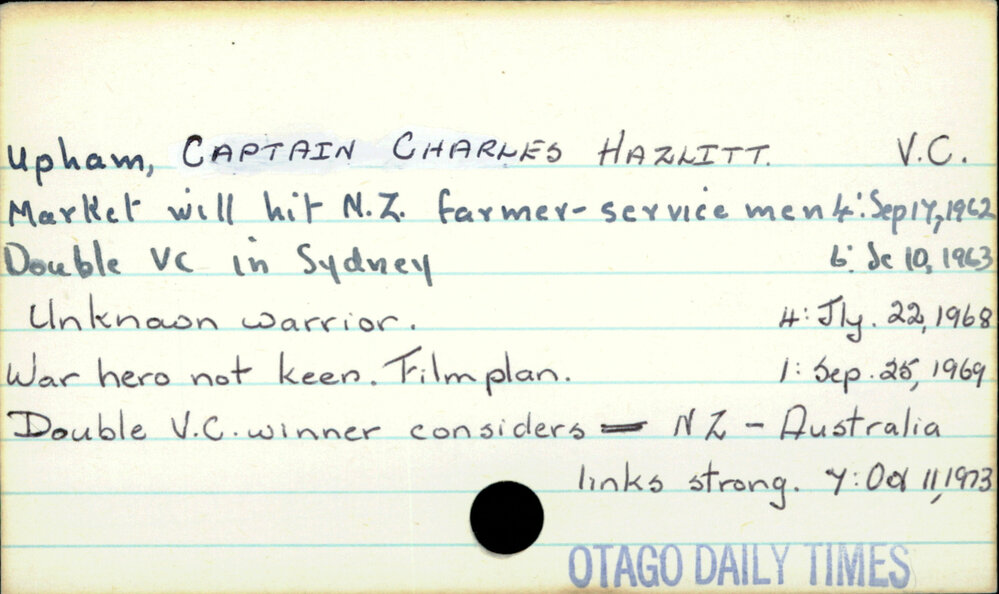 Upham, CAPTAIN CHARLES HAZLITT. V.C.
Market will hit N.Z. farmer-service men 4: Sep 17, 1962
Double VC in Sydney 6: Dc 10, 1963
Unknown warrior. 4: Jly. 22, 1968
War hero not keen. Film plan. 1: Sep. 25, 1969
Double V.C. winner considers = NZ - Australia
links strong. 7: Oct 11, 1973
OTAGO DAILY TIMES